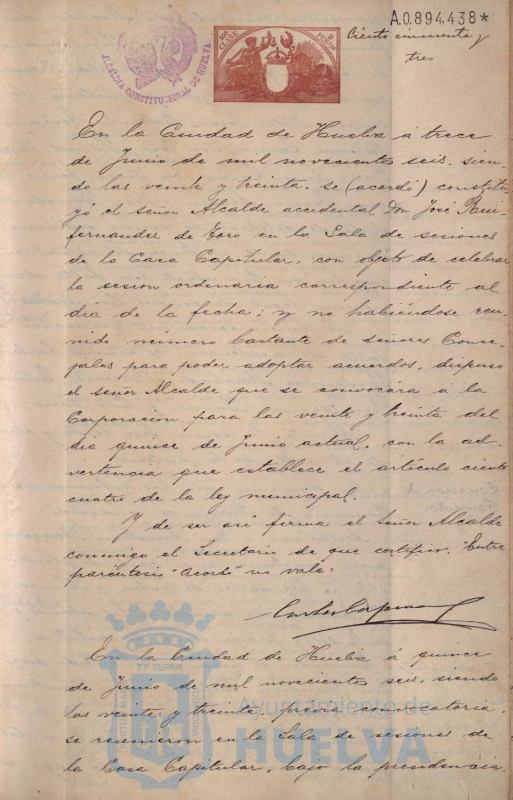 A.0.894.438*
Ciento cincuenta y
tres
ALCALDIA CONSTITUCIONAL DE HUELVA
En la Ciudad de Huelva á trece
de Junio de mil novecientos seis, sien-
do las veinte y treinta, se (acordó) constitu-
yó el señor Alcalde accidental Don José Rui-
fernandez de Toro en la Sala de sesiones
de la Casa Capitular, con objeto de celebrar
la sesion ordinaria correspondiente al
dia de la fecha; y no habiéndose reu-
nido número bastante de señores Conce-
jales para poder adoptar acuerdos, dispuso
el señor Alcalde que se convocára á la
Corporacion para las veinte y treinta del
dia quince de Junio actual, con la ad-
vertencia que establece el artículo ciento
cuatro de la ley municipal.
Y de ser así firma el Señor Alcalde
conmigo el Secretario de que certifico. Entre
paréntesis "acordó" no vale.
En la Ciudad de Huelva á quince
de Junio de mil novecientos seis, siendo
las veinte y treinta, previa convocatoria,
se reunieron en la Sala de sesiones de
la Casa Capitular, bajo la presidencia
Ayuntamiento de
HUELVA